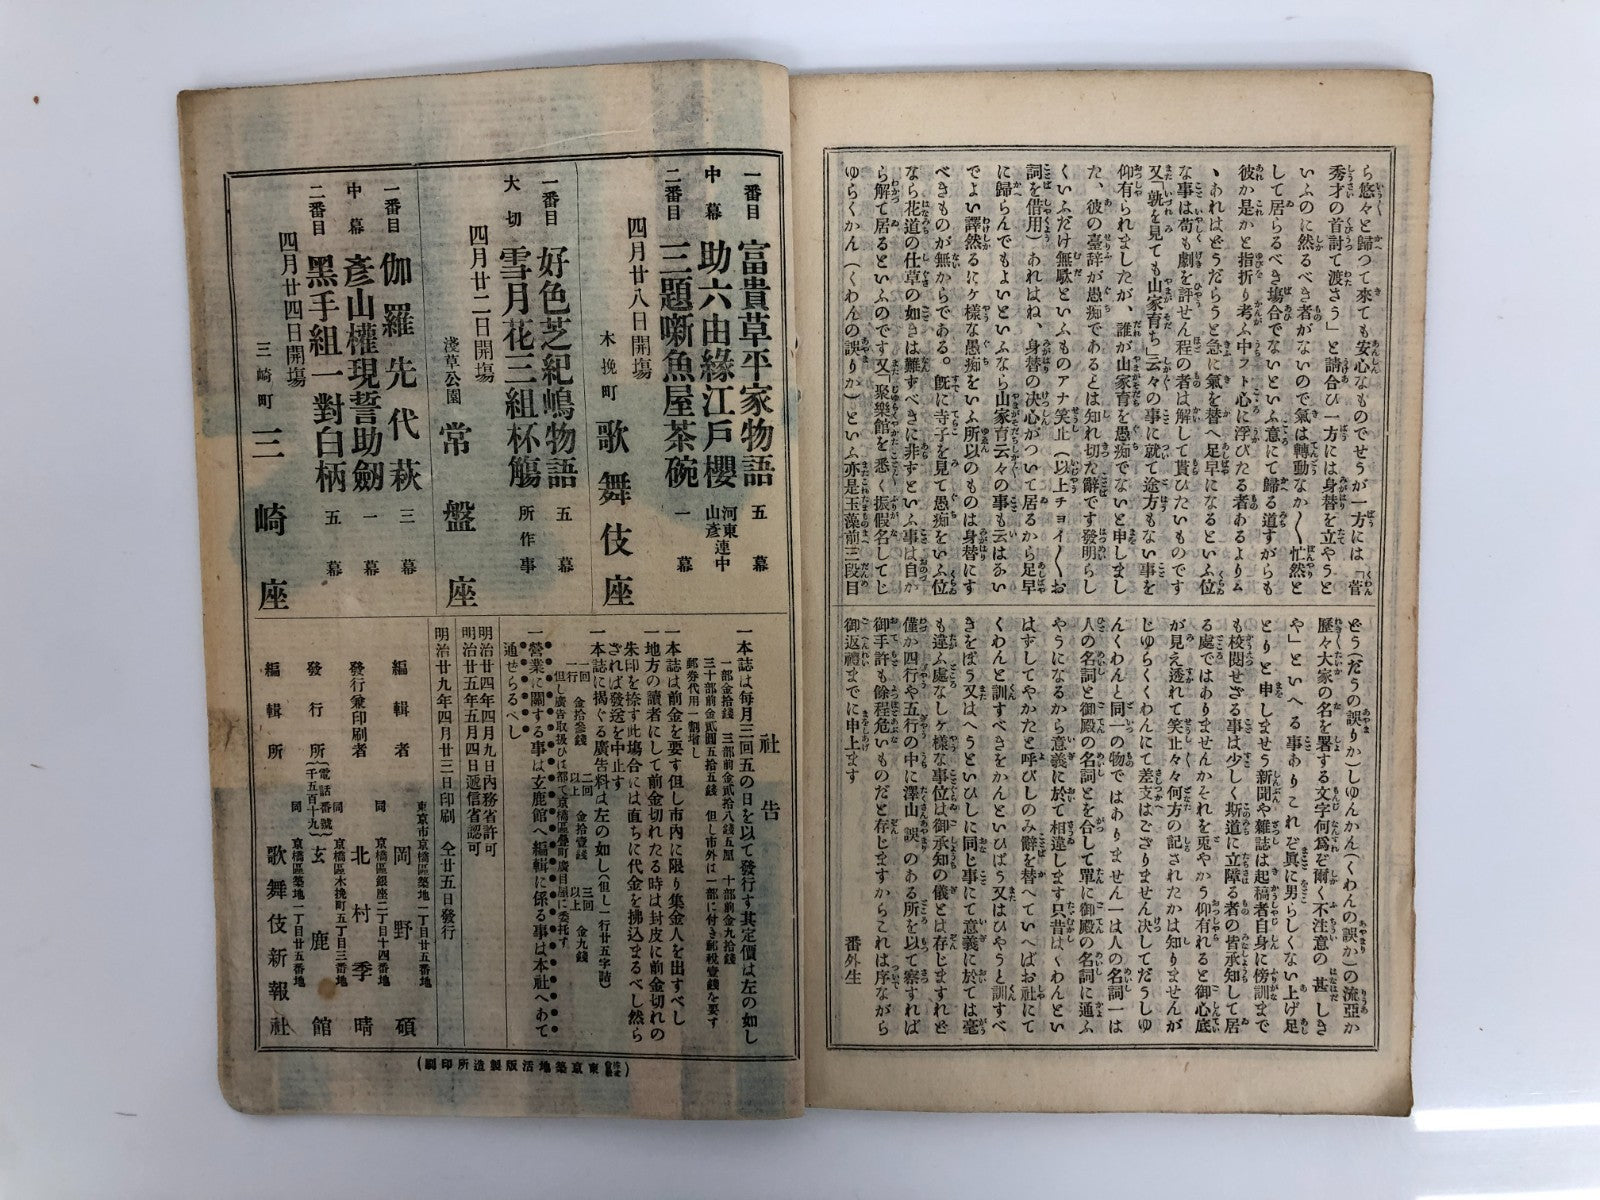 ら悠々と歸つて來ても安心なものでせうが一方には「菅
秀才の首討て渡さう」と請合ひ一方には身替を立やうと
いふのに然るべき者がないので氣は轉動なか〳〵忙然と
して居らるべき塲合でないといふ意にて歸る道すがらも
彼か是かと指折り考ふ中フト心に浮びたる者あるよりム
ヽあれはどうだらうと急に氣を替へ足早になるといふ位
な事は苟も劇を評せん程の者は解して貰ひたいものです
又「孰を見ても山家育ち」云々の事に就て途方もない事を
仰有られましたが、誰が山家育を愚痴でないと申しまし
た、彼の臺辞が愚痴であるとは知れ切た辭です發明らし
くいふだけ無駄といふものアナ笑止(以上チョイ〳〵お
詞を借用)あれはね、身替の決心がついて居るから足早
に歸らんでもよいといふなら山家育云々の事も云はるい
でよい譯然るにケ樣な愚痴をいふ所以のものは身替にす
べきものが無からである。既に寺子を見て愚痴をいふ位
なら花道の仕草の如きは難ずべきに非ずといふ事は自か
ら解て居るといふのです又「聚樂館を悉く振假名してじ
ゆらくかん(くわんの誤りか)といふ亦是玉藻前三段目
どう(だうの誤りか)しゆんかん(くわんの誤か)の流亞か
歷々大家の名を署する文字何爲ぞ爾く不注意の甚しき
や」といへる事ありこれぞ眞に男らしくない上げ足
とりと申しませう新聞や雜誌は起稿者自身に傍訓まで
も校閱せざる事は少しく斯道に立障る者の皆承知して居
る處ではありませんかそれを兎やかう仰有れると御心底
が見え透れて笑止々々何方の記されたかは知りませんが
じゆらくくわんにて差支はござりません決してだうしゆ
んくわんと同一の物ではありません一は人の名詞一は
人の名詞と御殿の名詞とを合して單に御殿の名詞に通ふ
やうになるから意義に於て相違します只昔はくわんとい
はずしてやかたと呼びしのみ辭を替へていへばお社にて
くわんと訓すべきをかんといひばう又はひやうと訓すべ
きをぼう又はへうといひしに同じ事にて意義に於ては毫
も違ふ處なしケ樣な事位は御承知の儀とは存じますれど
僅か四行や五行の中に澤山誤のある所を以て察すれば
御手許も餘程危いものだと存じますからこれは序ながら
御返禮までに申上ます
番外生
一番目 富貴草平家物語 五幕
中幕 助六由緣江戶櫻 河東連中 山彥
二番目 三題噺魚屋茶碗 一幕
四月廿八日開塲
木挽町 歌舞伎座
一番目 好色芝紀嶋物語 五幕
大切 雪月花三組杯觴 所作事
四月廿二日開塲
淺草公園 常盤座
一番目 伽羅先代萩 三幕
中幕 彥山權現誓助劒 一幕
二番目 黑手組一對白柄 五幕
四月廿四日開塲
三崎町 三崎座
社告
一本誌は每月三回五の日を以て發行す其定價は左の如し
一部金拾錢 三部前金貳拾八錢五厘 十部前金九拾錢
三十部前金貳圓五拾五錢 但し市外は一部に付き郵稅壹錢を要す
郵券代用一割增し
一本誌は前金を要す但し市內に限り集金人を出すべし
一地方の讀者にして前金切れたる時は封皮に前金切れの
朱印を捺す此塲合には直ちに代金を拂込まるべし然ら
されば發送を中止す
一本誌に揭ぐる廣告料は左の如し(但し一行廿五字詰)
一行 一回 金拾參錢 二回以上 金拾壹錢 三回以上 金九錢
但し廣告取扱ひは都て京橋區疊町廣目屋に委托す
一營業に關する事は玄鹿館へ編輯に係る事は本社へあて
通せらるべし
明治廿四年四月九日內務省許可
明治廿五年五月四日遞信省認可
明治廿九年四月廿三日印刷 仝廿五日發行
東京市京橋區築地一丁目廿五番地
編輯者 岡野碩
同 京橋區銀座二丁目十四番地
發行兼印刷者 北村季晴
同 京橋區木挽町五丁目三番地
發行所 (電話番號千五百十九) 玄鹿館
同 京橋區築地一丁目廿五番地
編輯所 歌舞伎新報社
(株式會社東京築地活版製造所印刷)